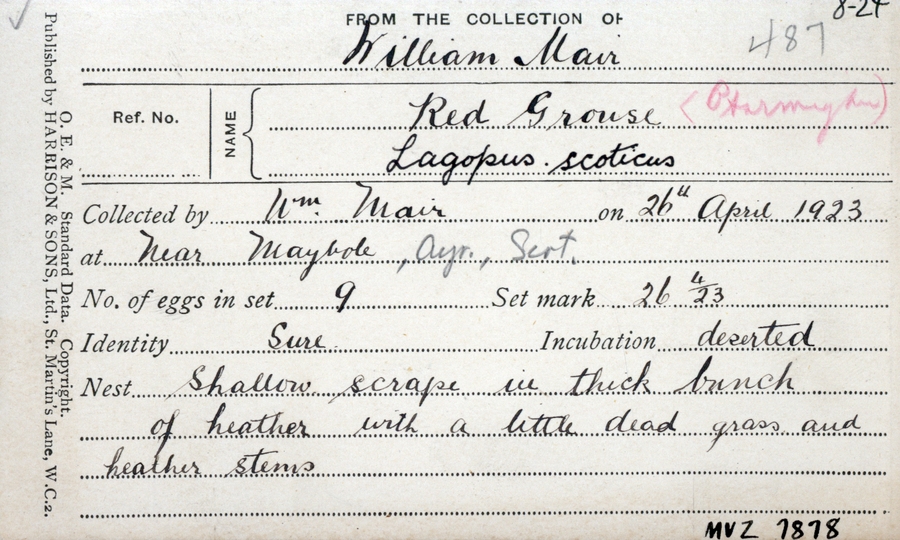 FROM THE COLLECTION OF
8-24
William Mair
487
Ref. No.
NAME
Red Grouse (Ptarmigan)
Lagopus scoticus
Collected by Wm. Mair on 26th April 1923
at Near Maybole, Ayr., Scot.
No. of eggs in set 9 Set mark 26 4/23
Identity Sure Incubation deserted
Nest Shallow scrape in thick bunch
of heather with a little dead grass and
heather stems
MVZ 7878
O. E. & M. Standard Data. Copyright.
Published by HARRISON & SONS, Ltd., St. Martin's Lane, W.C.2.